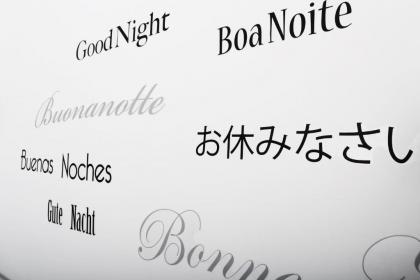 Good Night
Boa Noite
Buonanotte
お休みなさい
Buenas Noches
Gute Nacht
Bonne